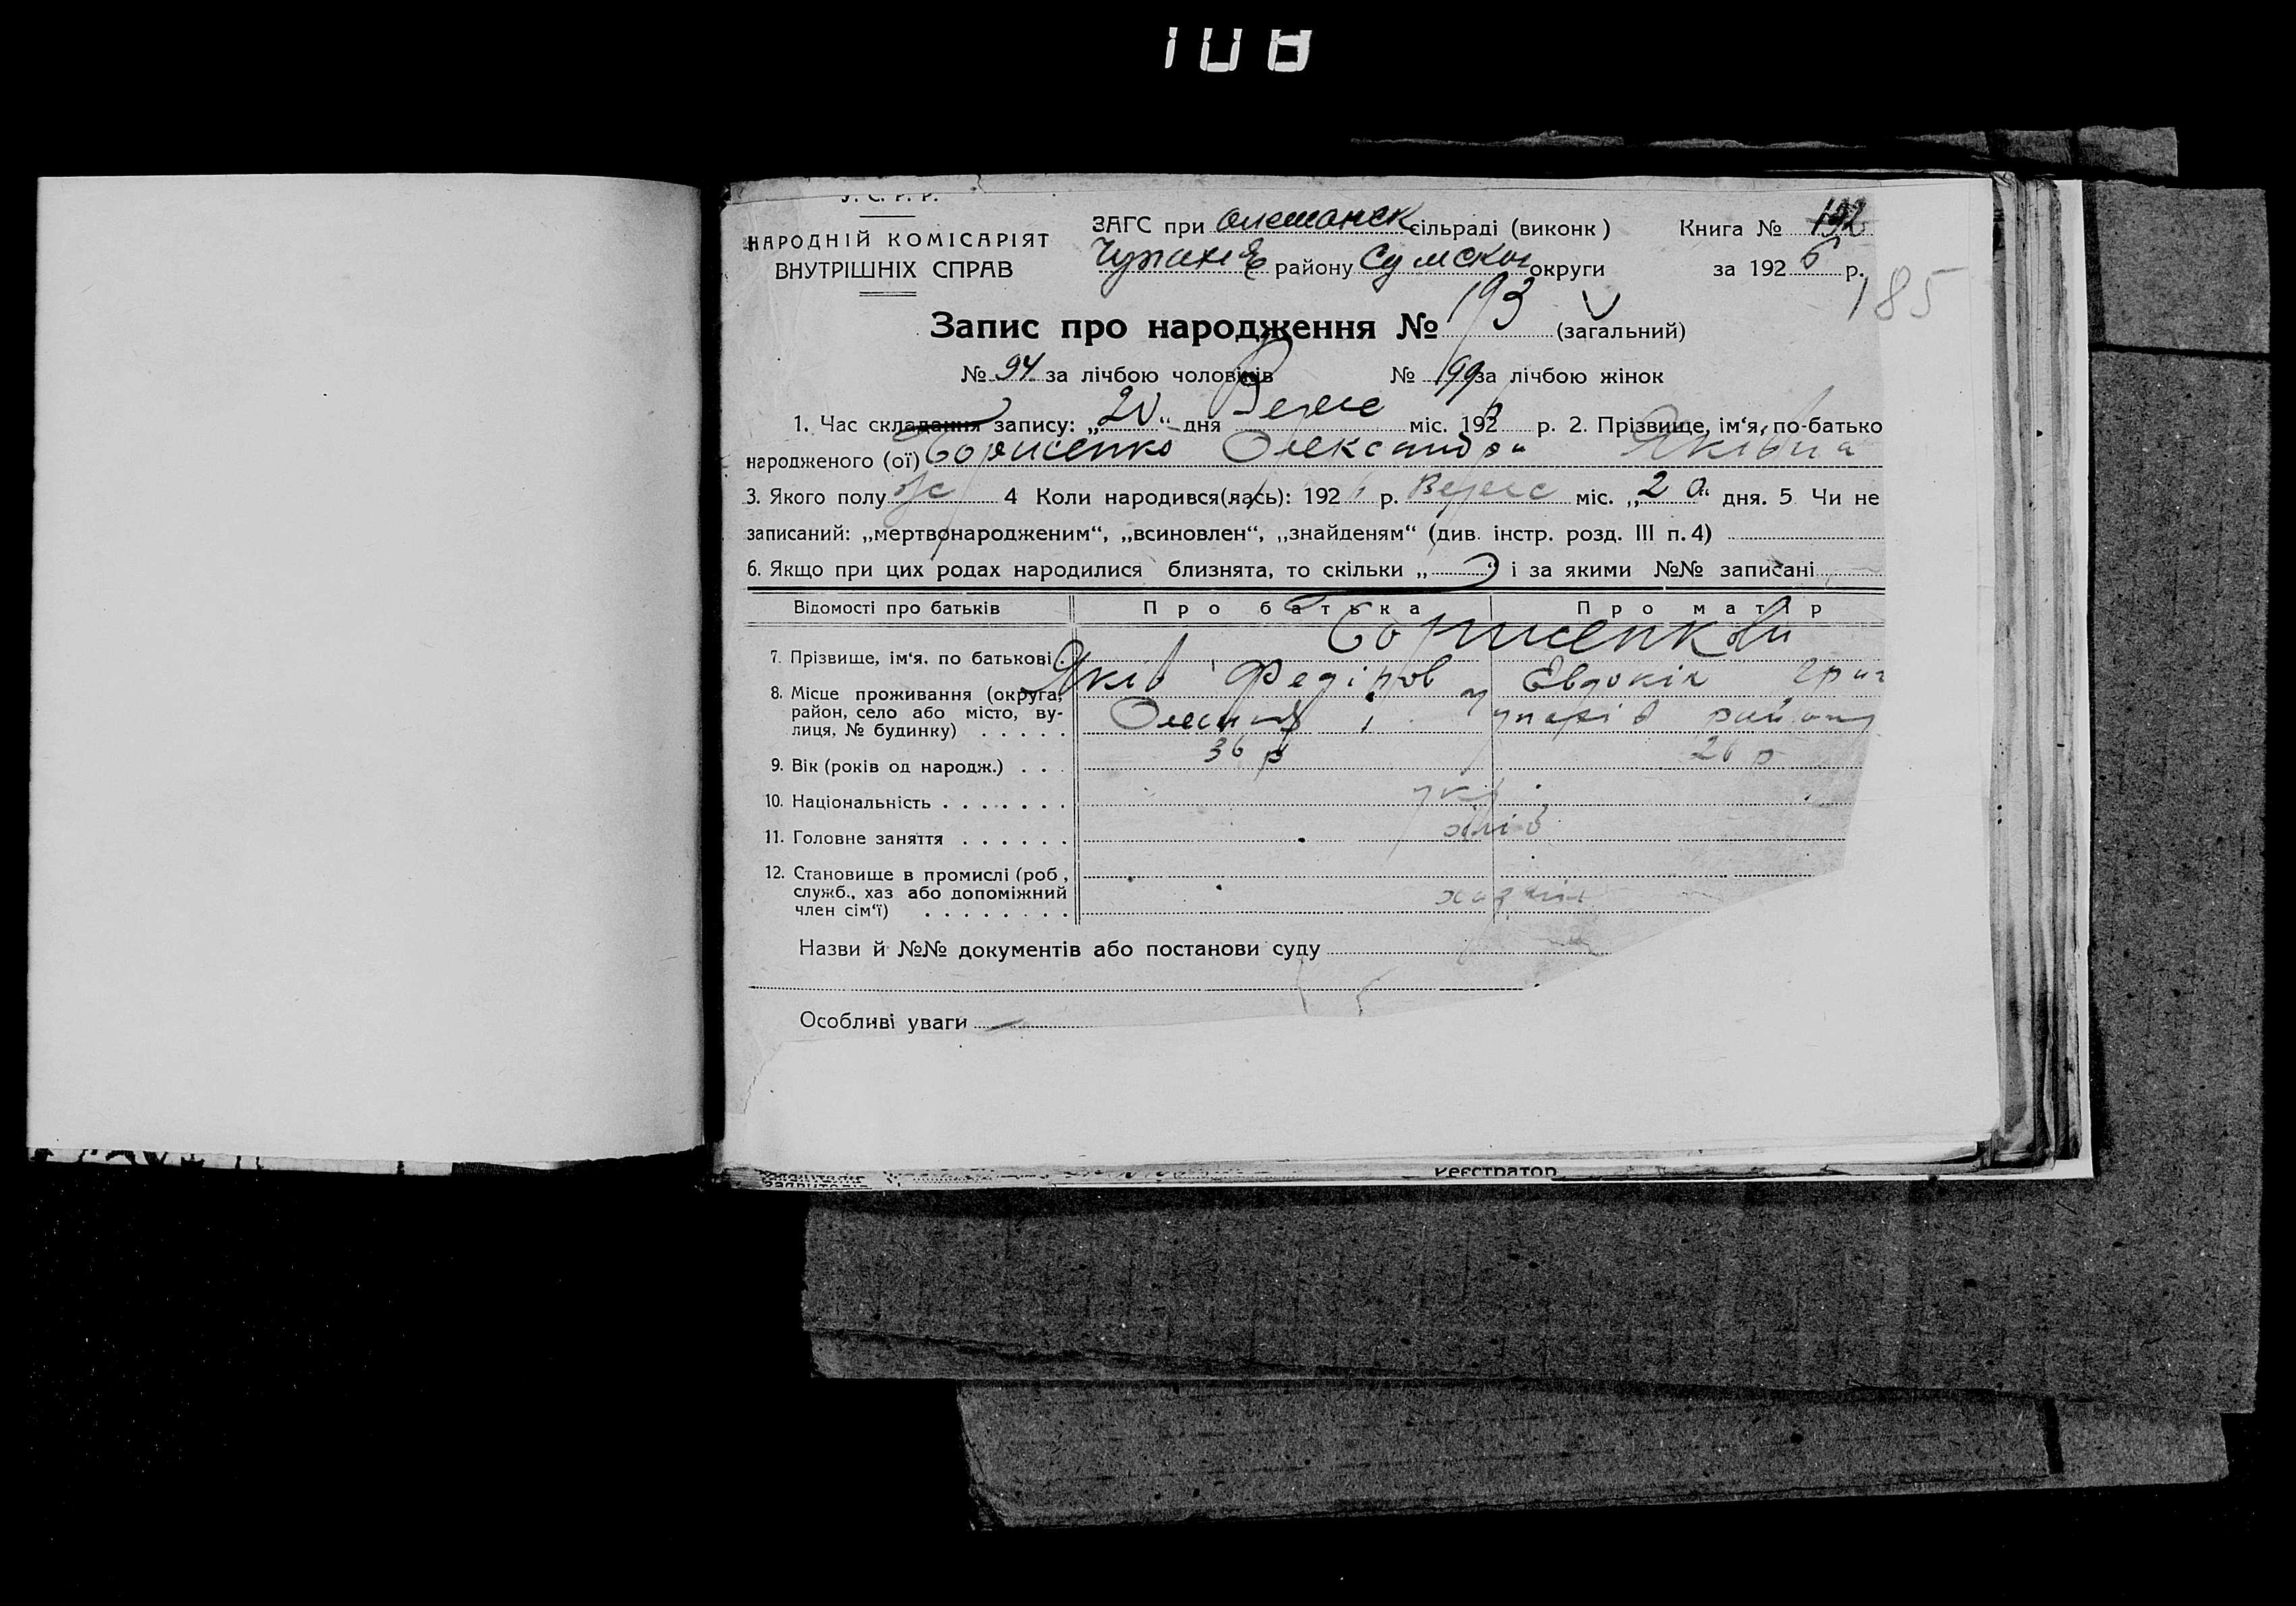 108
У. С. Р. Р.
НАРОДНІЙ КОМІСАРІЯТ
ВНУТРІШНІХ СПРАВ
ЗАГС при Олешанск сільраді (виконк)
району Сумской округи
Книга № 192
за 1926 р.
185
Запис про народження № 193 (загальний)
№ 94 за лічбою чоловіків № 99 за лічбою жінок
1. Час складання запису: „20“ дня Верес міс. 192 р. 2. Прізвище, ім‘я, по-батько
народженого (ої) Борисенко Олександра Яківна
3. Якого полу ж 4 Коли народився(лась): 192 р. Верес міс. „20“ дня. 5 Чи не
записаний: „мертвонародженим“, „всиновлен“, „знайденям“ (див. інстр. розд. III п. 4)
6. Якщо при цих родах народилися близнята, то скільки „ “ і за якими №№ записані
Відомості про батьків Про батька Про матір
Борисенкови
7. Прізвище, ім‘я, по батькові Яків Федіров Евдокія Григ
8. Місце проживання (округа,
район, село або місто, ву-
лиця, № будинку) району
9. Вік (років од народж.) 36 р 26 р
10. Національність укр
11. Головне заняття хліб
12. Становище в промислі (роб,
служб., хаз або допоміжний
член сім‘ї)
Назви й №№ документів або постанови суду
Особливі уваги
Реєстратор